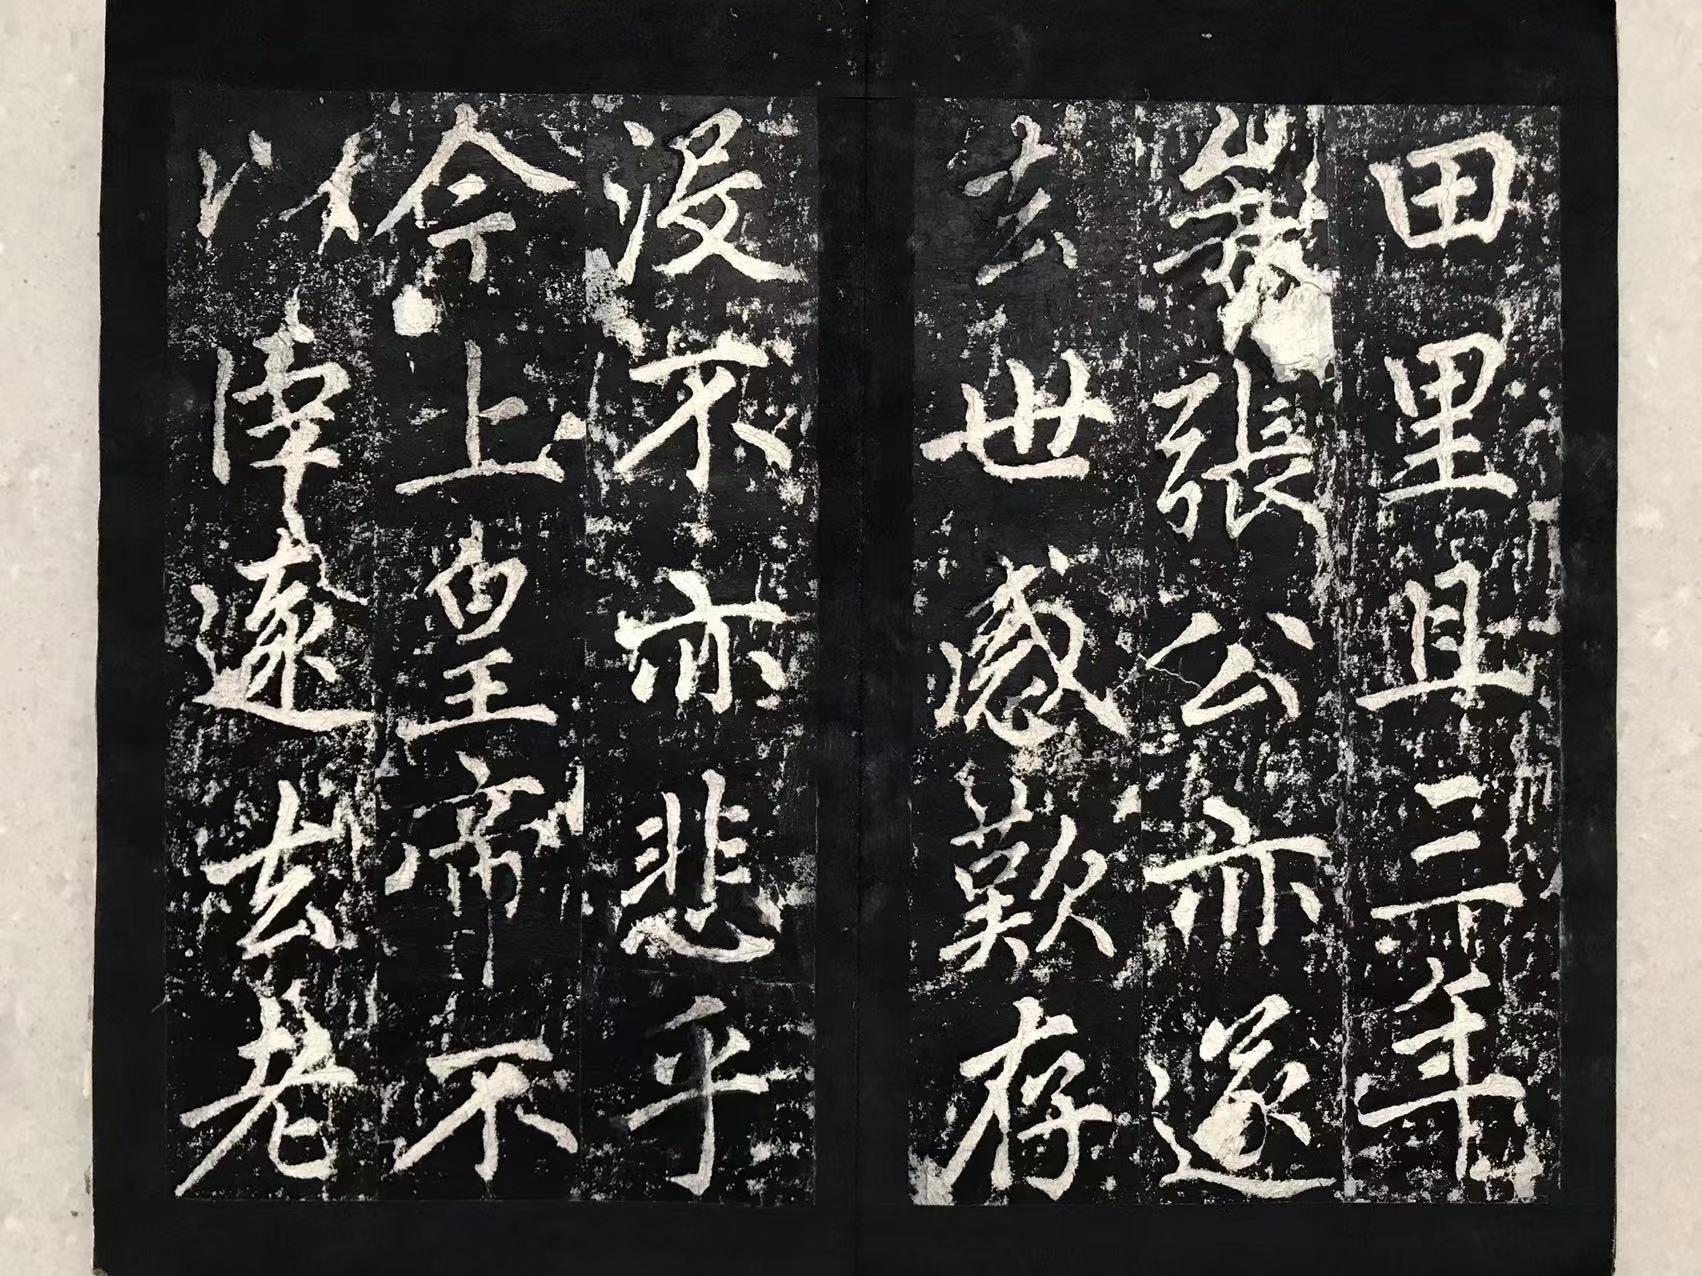 田里且三年
張公亦遂
去世感歎存
沒不亦悲乎
今上皇帝不
以遠去老